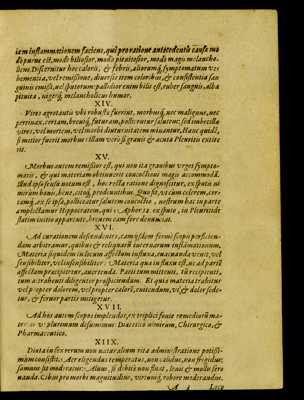 iam inflammationem faciens, qui pro ratione antecedentis causæ mo
dò purus est, modò biliosior, modò pituitosior, modò magis melancho-
licus. Discernitur hoc caloris, & febris, aliorumq; symptomatum ve-
hementia, vel remissione, diversis item coloribus, & consistentia san
guinis emissi, vel sputorum: pallidior enim bilis est, ruber sanguis, alba
pituita, niger q; melancholicus humor.
XIV.
Vires ægrotantis ubi robustæ fuerint, morbusq; nec malignus, nec
pertinax, certam, brevemq; futuram, pollicetur salutem: sed imbecilla
vires, vel mortem, vel morbi diuturnitatem minantur. Hanc quidē,
si mitior fuerit morbus: illam verò si gravis & acuta Pleuritis extite
rit.
XV.
Morbus autem remissior est, qui non ita gravibus urget sympto-
matis, & qui materiam obtinuerit concoctioni magis accommodā.
Illud ipso sensu notum est, hoc recta ratione dignoscitur, ex sputo ni
mirùm bono, bene, citoq; prodeunte. Quo fit, ut cùm celerem, cer-
tamq; ex se ipsa, polliceatur salutem concoctio, nostrum hac in parte
amplectamur Hippocratem, qui 1. Aphor. 12. ex sputo, in Pleuritide
statim initio apparente, brevem eam fore denunciat.
XVI.
Ad curationem descendentes, eam ijsdem fermè scopis perficien-
dam arbitramur, quibus & reliquarū internarum inflāmationum.
Materia siquidem in locum affectum influxa, evacuanda venit, vel
sensibiliter, vel insensibiliter: Materia quæ in fluxu est, ne ad partē
affectam præcipitetur, avertenda. Parti tum mittenti, tū recipienti,
tum astrahenti diligenter prospiciendum. Et quia materia trahitur
vel propter dolorem, vel propter calorē, emitendum, ut & dolor sede-
tur, & fervor partis mitigetur.
XVII.
Ad hos autem scopos implendos, ex triplici fonte remediorū ma-
teria ut plurimum desumimus: Diæteticò nimirum, Chirurgico, &
Pharmaceutico.
XIIX.
Diæta in sex rerum non naturalium rita administratione potissi-
mùm consistit. Aër eligendus temperatus, non calidus, non frigidus;
somnus sit moderatus: Alvus, si debitè non fluat, leni & molli sero
nanda. Cibus pro morbi magnitudine, viriumq; robore moderandus.